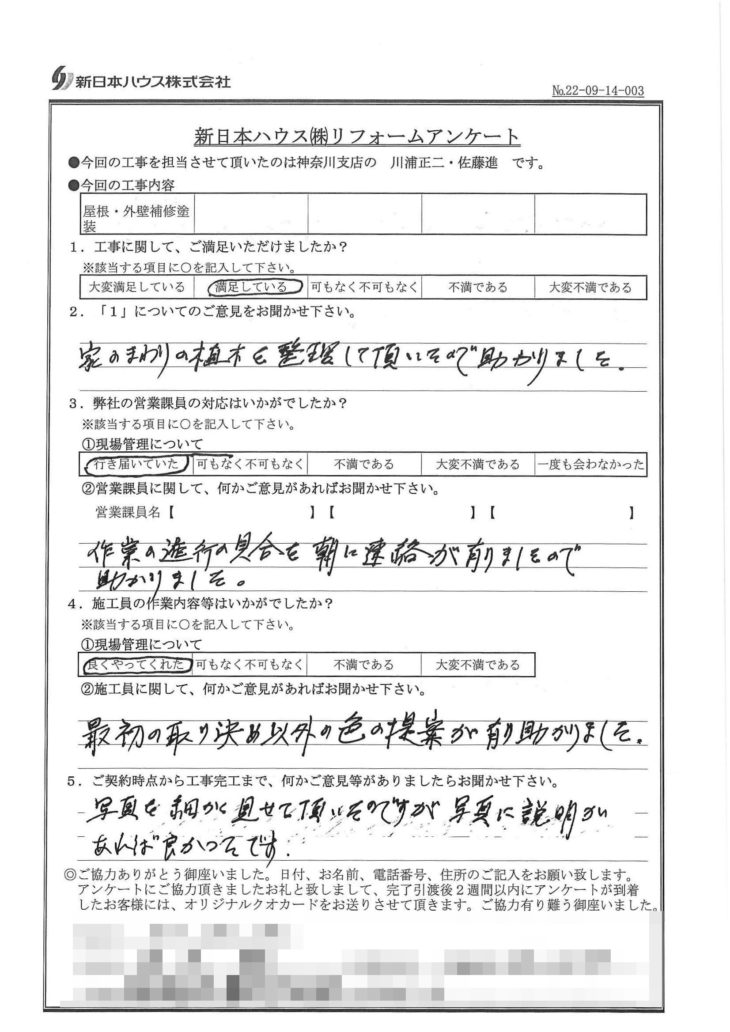 新日本ハウス株式会社
No.22-09-14-003
新日本ハウス㈱リフォームアンケート
●今回の工事を担当させて頂いたのは神奈川支店の 川浦正二・佐藤進 です。
●今回の工事内容
屋根・外壁補修塗
装
1．工事に関して、ご満足いただけましたか？
※該当する項目に○を記入して下さい。
大変満足している 満足している 可もなく不可もなく 不満である 大変不満である
2．「1」についてのご意見をお聞かせ下さい。
家のまわりの植木を整理して頂いたので助かりました。
3．弊社の営業課員の対応はいかがでしたか？
※該当する項目に○を記入して下さい。
①現場管理について
行き届いていた 可もなく不可もなく 不満である 大変不満である 一度も会わなかった
②営業課員に関して、何かご意見があればお聞かせ下さい。
営業課員名【 】【 】【 】
作業の進行の具合を朝に連絡が有りましたので
助かりました。
4．施工員の作業内容等はいかがでしたか？
※該当する項目に○を記入して下さい。
①現場管理について
良くやってくれた 可もなく不可もなく 不満である 大変不満である
②施工員に関して、何かご意見があればお聞かせ下さい。
最初の取り決め以外の色の提案が有り助かりました。
5．ご契約時点から工事完工まで、何かご意見等がありましたらお聞かせ下さい。
写真を細かく見せて頂いたのですが写真に説明が
あれば良かったです.
◎ご協力ありがとう御座いました。日付、お名前、電話番号、住所のご記入をお願い致します。
アンケートにご協力頂きましたお礼と致しまして、完了引渡後2週間以内にアンケートが到着
したお客様には、オリジナルクオカードをお送りさせて頂きます。ご協力有り難う御座いました。